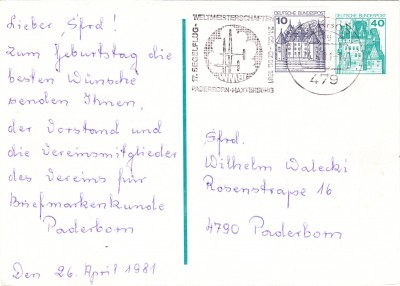 Lieber „Sfrd.!
Zum Geburtstag die
besten Wünsche
senden Ihnen,
der Vorstand und
die Vereinsmitglieder
des Vereins für
Briefmarkenkunde
Paderborn
Den 26. April 1981
17. SEGELFLUG-
WELTMEISTERSCHAFTEN
PADERBORN-HAXTERBERG
10
DEUTSCHE BUNDESPOST
DEUTSCHE BUNDESPOST
40
479
Sfrd.
Wilhelm Walecki
Rosenstraße 16
4790 Paderborn